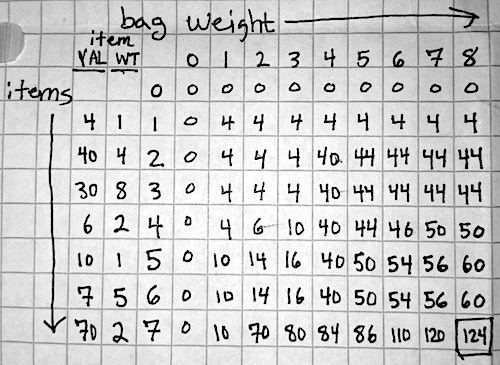 bag weight
item
VAL WT 0 1 2 3 4 5 6 7 8
items 0 0 0 0 0 0 0 0 0 0
4 1 1 0 4 4 4 4 4 4 4 4
40 4 2 0 4 4 4 40 44 44 44 44
30 8 3 0 4 4 4 40 44 44 44 44
6 2 4 0 4 6 10 40 44 46 50 50
10 1 5 0 10 14 16 40 50 54 56 60
7 5 6 0 10 14 16 40 50 54 56 60
70 2 7 0 10 70 80 84 86 110 120 124